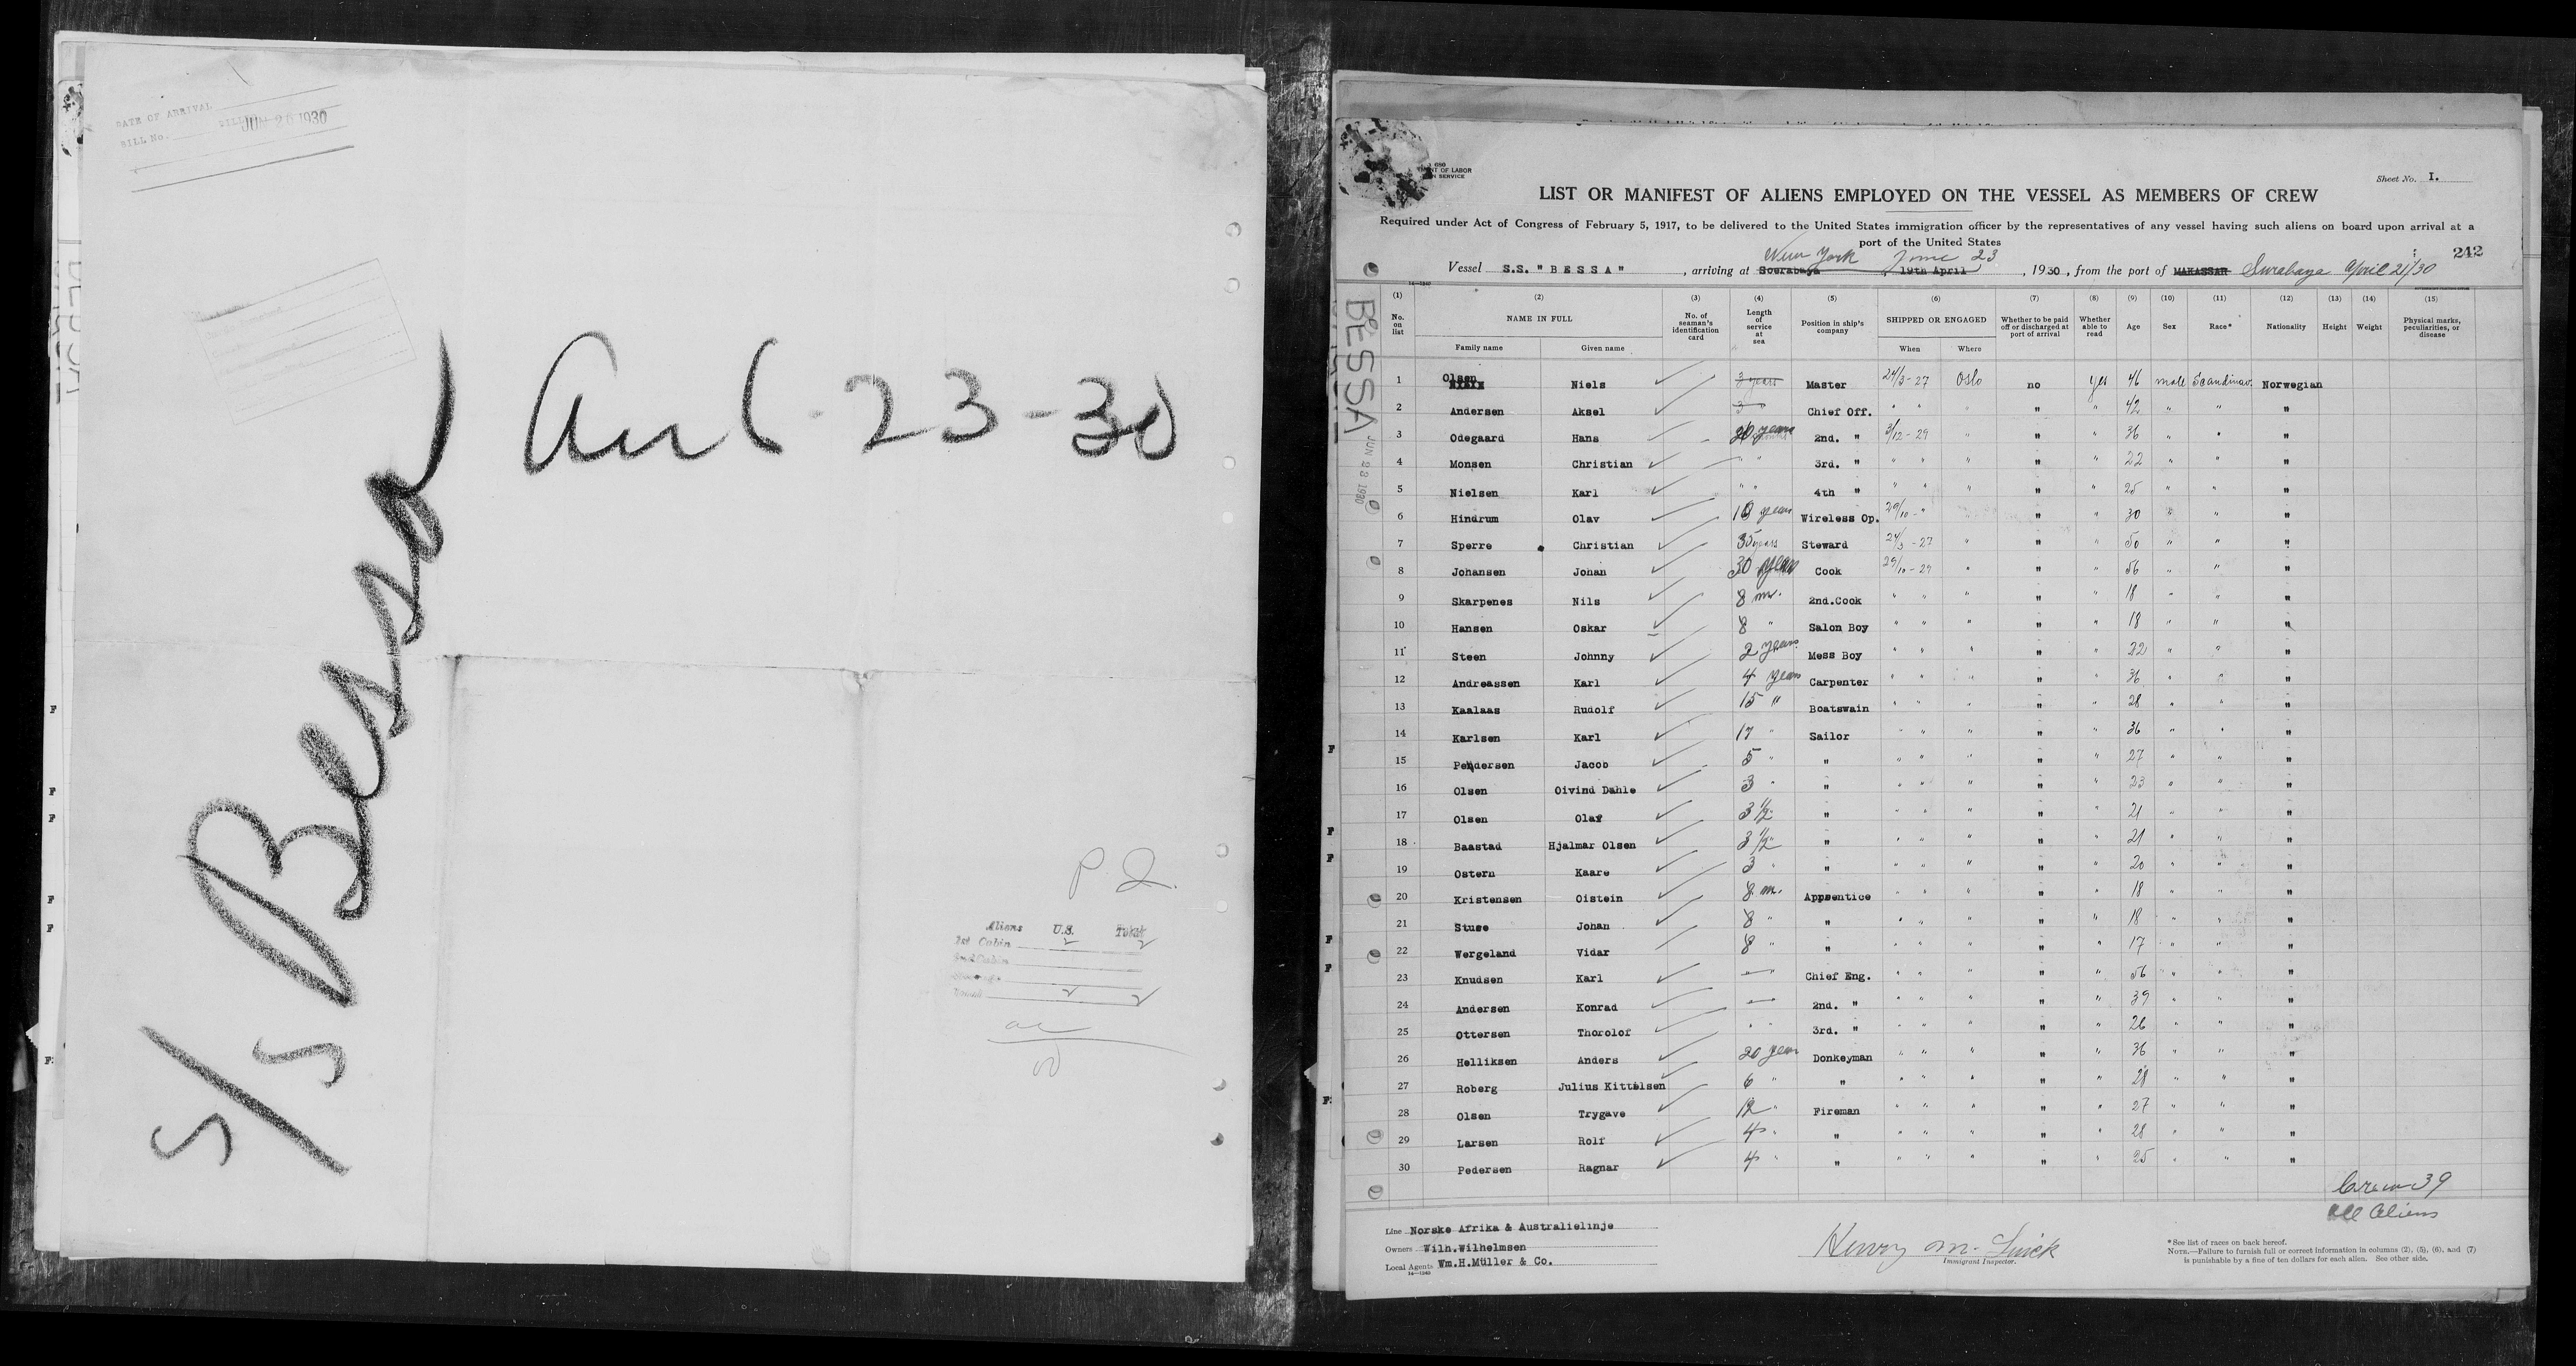 DATE OF ARRIVAL
BILL No. JUN 26 1930
S/S Bessa
Arr 6-23-30
P. I.
Aliens U.S. Total
1st Cabin 2 2
2nd Cabin
Total 2 2
BESSA
JUN 23 1930
T OF LABOR
N SERVICE
Sheet No. I.
LIST OR MANIFEST OF ALIENS EMPLOYED ON THE VESSEL AS MEMBERS OF CREW
Required under Act of Congress of February 5, 1917, to be delivered to the United States immigration officer by the representatives of any vessel having such aliens on board upon arrival at a
port of the United States
242
New York June 23
Vessel S.S. "BESSA", arriving at Soerabaya, 19th April, 1930, from the port of MAKASSAR Surabaya April 21/30
14-1240
(1) (2) (3) (4) (5) (6) (7) (8) (9) (10) (11) (12) (13) (14) (15)
No. on list NAME IN FULL Family name Given name No. of seaman's identification card Length of service at sea Position in ship's company SHIPPED OR ENGAGED When Where Whether to be paid off or discharged at port of arrival Whether able to read Age Sex Race* Nationality Height Weight Physical marks, peculiarities, or disease
1 Olsen Niels 3 years Master 24/3-27 Oslo no yes 46 male Scandinav. Norwegian
2 Andersen Aksel 3 Chief Off. " " " " " 42 " " "
3 Odegaard Hans 20 years 2nd. " 3/12-29 " " " 36 " " "
4 Monsen Christian " " 3rd. " " " " " " 22 " " "
5 Nielsen Karl " " 4th " " " " " " 25 " " "
6 Hindrum Olav 10 years Wireless Op. 29/10-" " " " 30 " " "
7 Sperre Christian 35 years Steward 24/3-27 " " " 50 " " "
8 Johansen Johan 30 years Cook 29/10-29 " " " 56 " " "
9 Skarpenes Nils 8 m. 2nd.Cook " " " " " 18 " " "
10 Hansen Oskar 8 " Salon Boy " " " " " 18 " " "
11 Steen Johnny 2 years Mess Boy " " " " " 22 " " "
12 Andreassen Karl 4 years Carpenter " " " " " 36 " " "
13 Kaalaas Rudolf 15 " Boatswain " " " " " 28 " " "
14 Karlsen Karl 17 " Sailor " " " " " 36 " " "
15 Pedersen Jacob 5 " " " " " " " 27 " " "
16 Olsen Oivind Dahle 3 " " " " " " " 23 " " "
17 Olsen Olaf 3 1/2 " " " " " " 21 " " "
18 Baastad Hjalmar Olsen 3 1/2 " " " " " " " 21 " " "
19 Ostern Kaare 3 " " " " " " " 20 " " "
20 Kristensen Oistein 8 m. Apprentice " " " " " 18 " " "
21 Stuse Johan 8 " " " " " " " 18 " " "
22 Wergeland Vidar 8 " " " " " " " 17 " " "
23 Knudsen Karl Chief Eng. " " " " " 56 " " "
24 Andersen Konrad 2nd. " " " " " " 39 " " "
25 Ottersen Thorolof " " 3rd. " " " " " " 26 " " "
26 Helliksen Anders 20 years Donkeyman " " " " " 36 " " "
27 Roberg Julius Kittilsen 6 " " " " " " " 28 " " "
28 Olsen Trygave 12 " Fireman " " " " " 27 " " "
29 Larsen Rolf 4 " " " " " " " 28 " " "
30 Pedersen Ragnar 4 " " " " " " " 25 " " "
Crew 39
All Aliens
Line Norske Afrika & Australielinje
Owners Wilh.Wilhelmsen
Local Agents Wm.H.Müller & Co.
14-1240
Immigrant Inspector.
*See list of races on back hereof.
NOTE.—Failure to furnish full or correct information in columns (2), (5), (6), and (7)
is punishable by a fine of ten dollars for each alien. See other side.